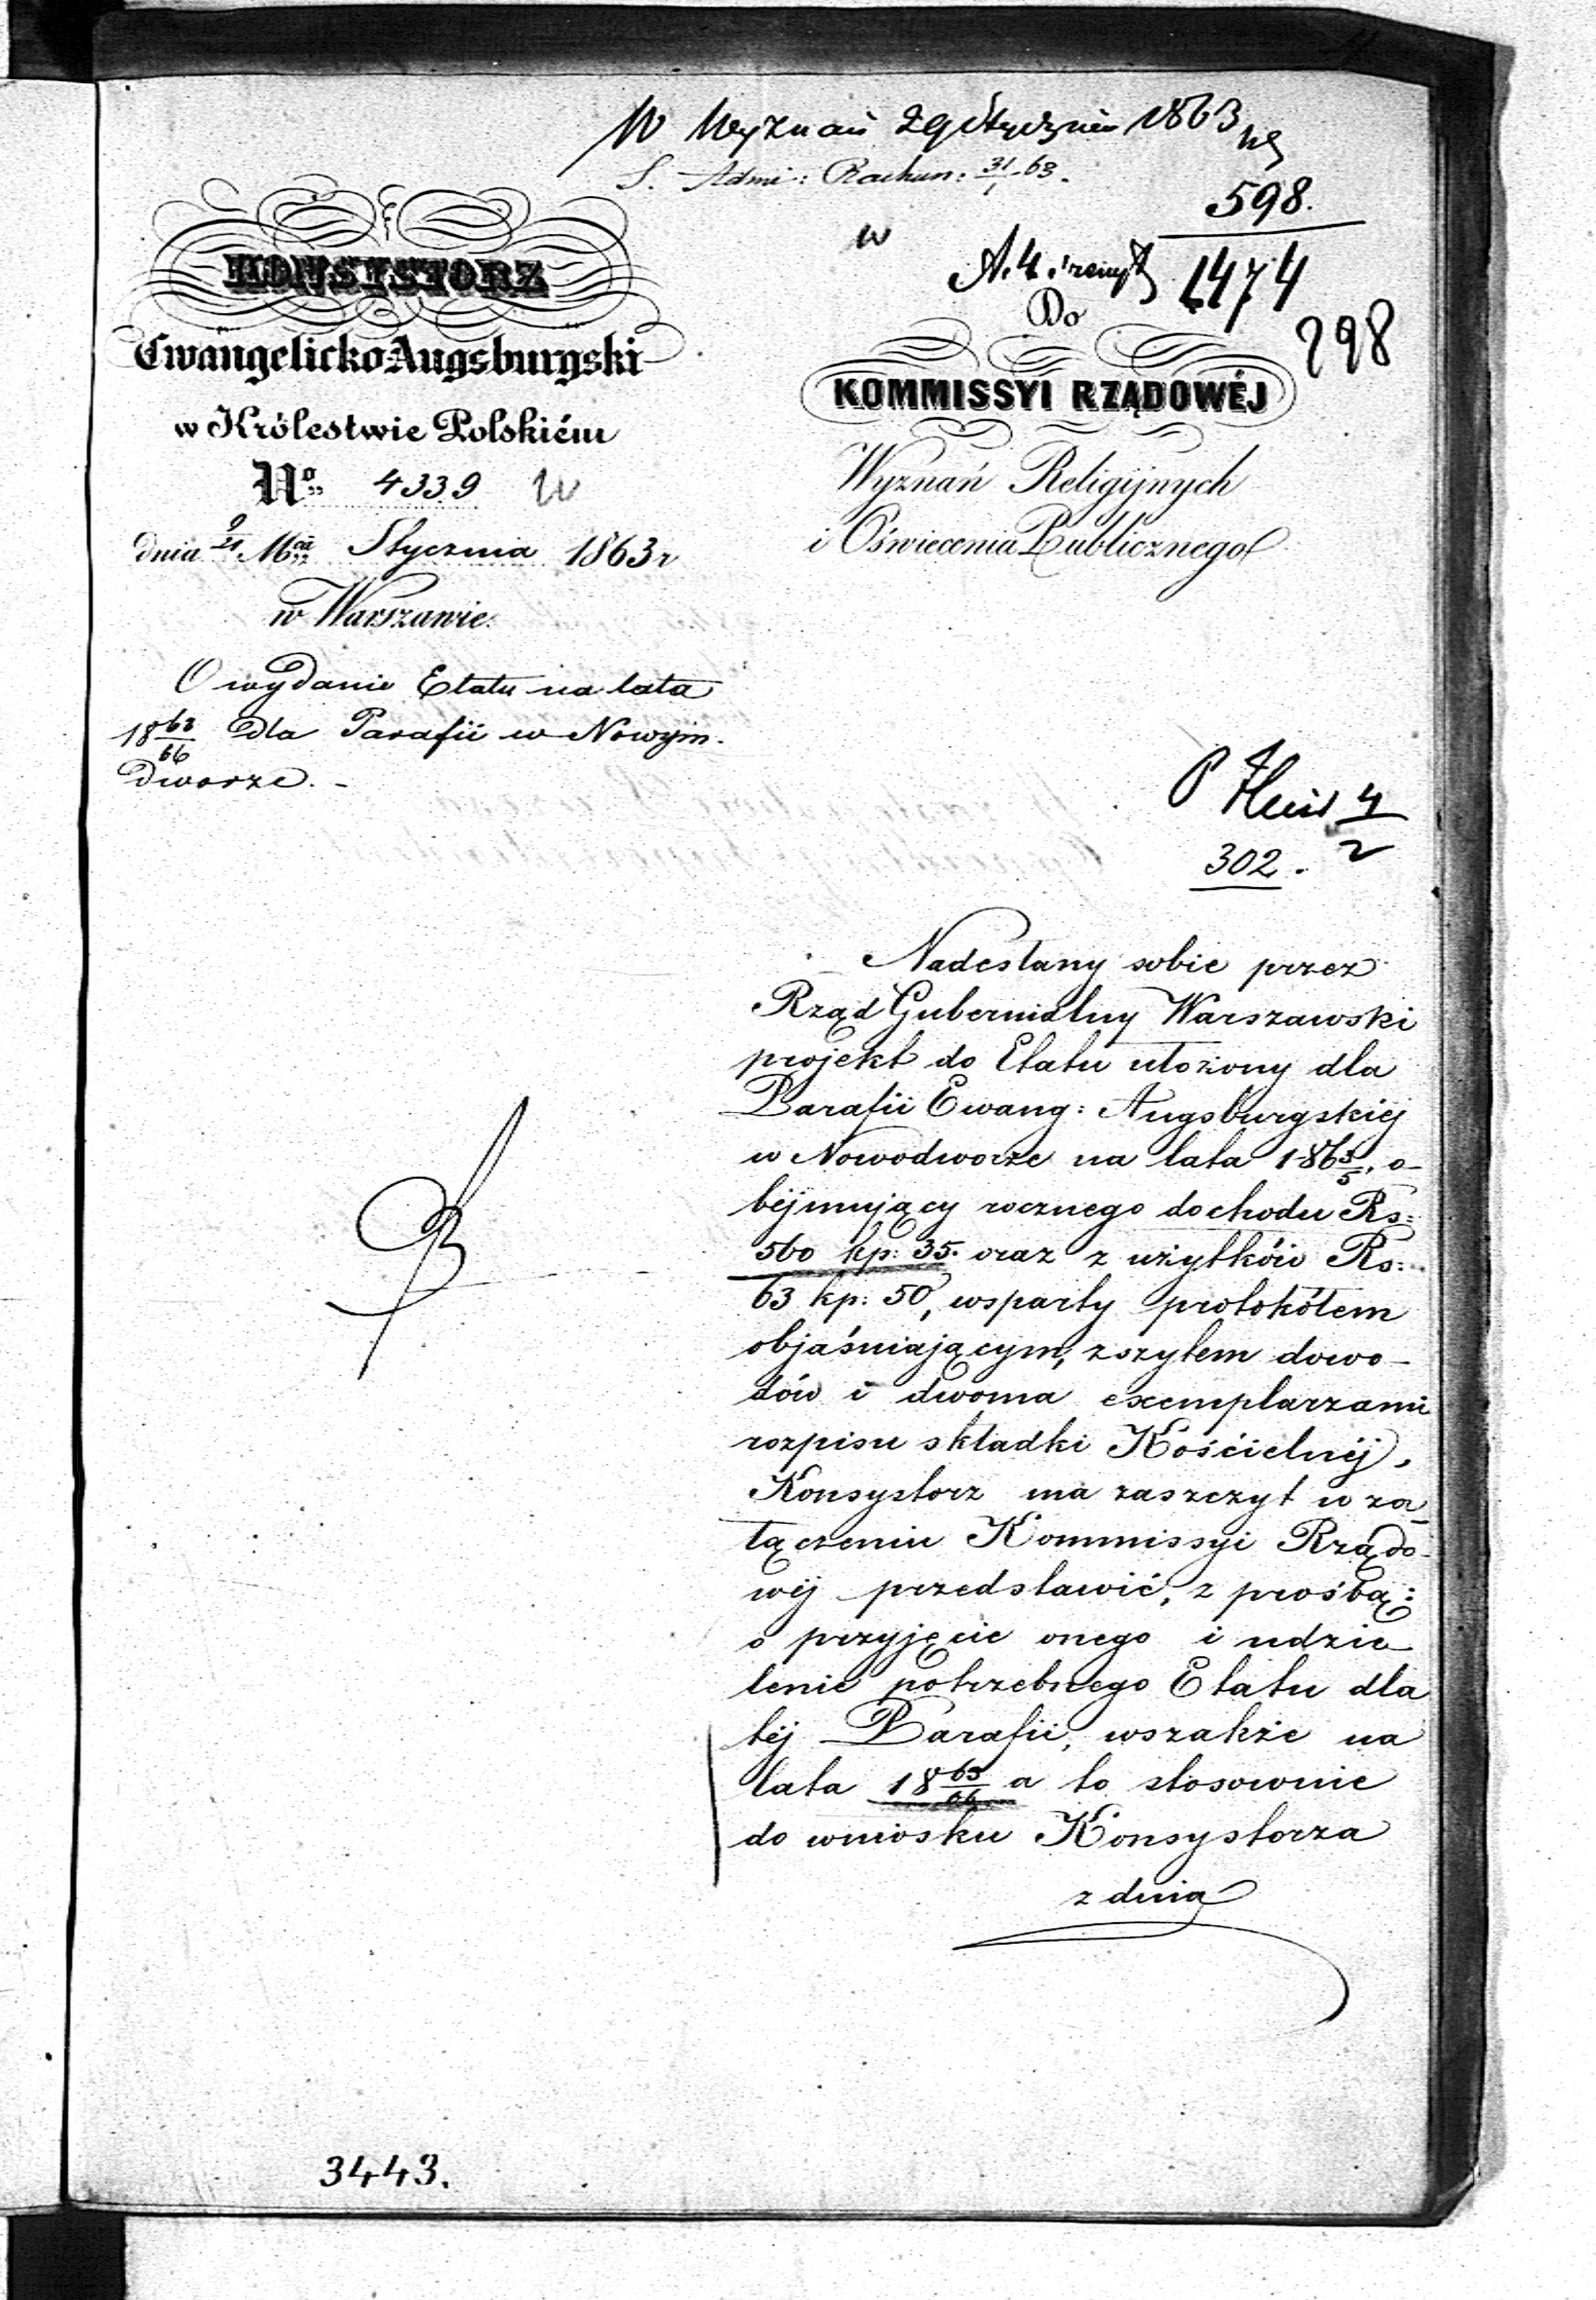 W Wyznań 29 Stycznia 1863
S. Admi: Rachun: 31/1 63.
598.
w
1474
298
KONSYSTORZ
Ewangelicko-Augsburgski
w Królestwie Polskiém
No 4339
dnia 9/21 Mca Stycznia 1863 r
w Warszawie.
O wydanie Etatu na lata
18 63/66 dla Parafii w Nowym-
Dworze. -
Do
KOMMISSYI RZĄDOWÉJ
Wyznań Religijnych
i Oświecenia Publicznego
P 4/2
302.
Nadesłany sobie przez
Rząd Gubernialny Warszawski
projekt do Etatu ułożony dla
Parafii Ewang: Augsburgskiej
w Nowodworze na lata 186 3/5, o-
béjmujący rocznego dochodu Rs:
560 kp: 35. oraz z użytków Rs:
63 kp: 50, wsparty protokółem
objaśniającym, zszytem dowo-
dów i dwoma exemplarzami
rozpisu składki Kościelnéj,
Konsystorz ma zaszczyt w za-
łączeniu Kommissyi Rządo-
wéj przedstawić, z prośbą:
o przyjęcie onego i udzie-
lenie potrzebnego Etatu dla
téj Parafii, wszakże na
lata 18 63/66 a to stosownie
do wniosku Konsystorza
z dnia
3443.